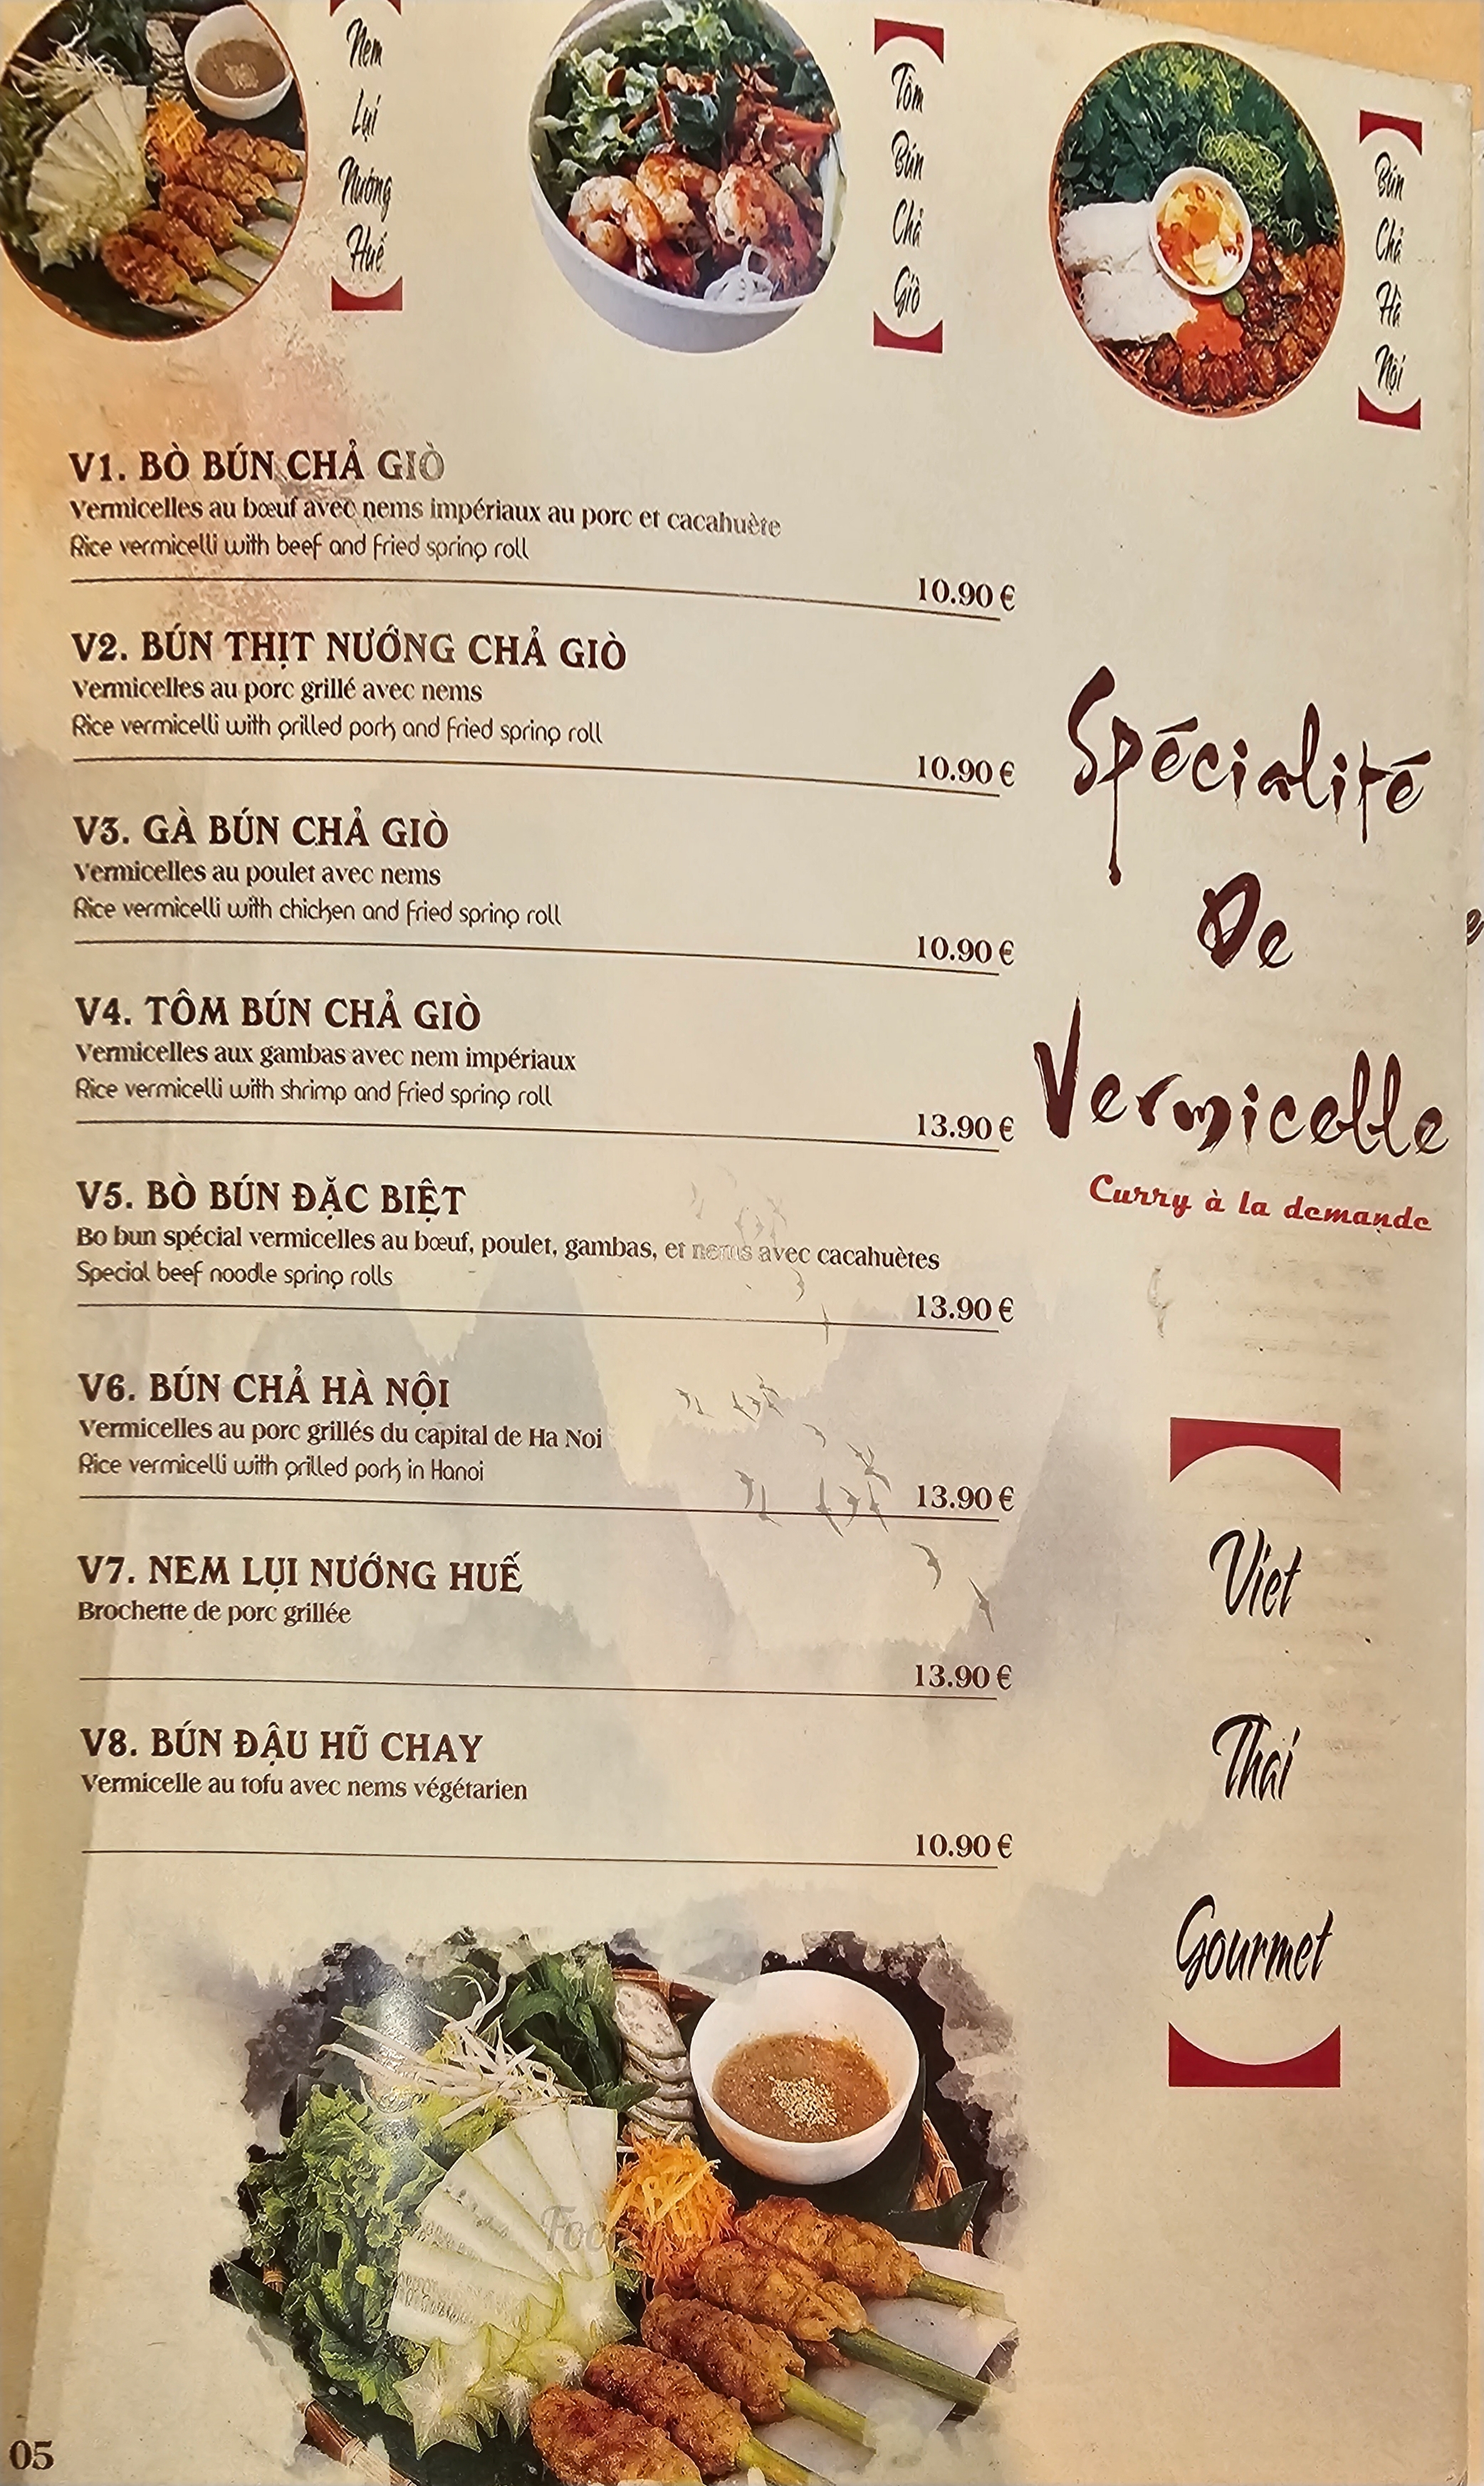 Nem
Lụi
Nướng
Huế
Tôm
Bún
Chả
Giò
Bún
Chả
Hà
Nội
V1. BÒ BÚN CHẢ GIÒ
Vermicelles au bœuf avec nems impériaux au porc et cacahuète
Rice vermicelli with beef and fried spring roll
10.90 €
V2. BÚN THỊT NƯỚNG CHẢ GIÒ
Vermicelles au porc grillé avec nems
Rice vermicelli with grilled pork and fried spring roll
10.90 €
V3. GÀ BÚN CHẢ GIÒ
Vermicelles au poulet avec nems
Rice vermicelli with chicken and fried spring roll
10.90 €
V4. TÔM BÚN CHẢ GIÒ
Vermicelles aux gambas avec nem impériaux
Rice vermicelli with shrimp and fried spring roll
13.90 €
V5. BÒ BÚN ĐẶC BIỆT
Bo bun spécial vermicelles au bœuf, poulet, gambas, et nems avec cacahuètes
Special beef noodle spring rolls
13.90 €
V6. BÚN CHẢ HÀ NỘI
Vermicelles au porc grillés du capital de Ha Noi
Rice vermicelli with grilled pork in Hanoi
13.90 €
V7. NEM LỤI NƯỚNG HUẾ
Brochette de porc grillée
13.90 €
V8. BÚN ĐẬU HŨ CHAY
Vermicelle au tofu avec nems végétarien
10.90 €
Spécialité
De
Vermicelle
Curry à la demande
Viet
Thai
Gourmet
05